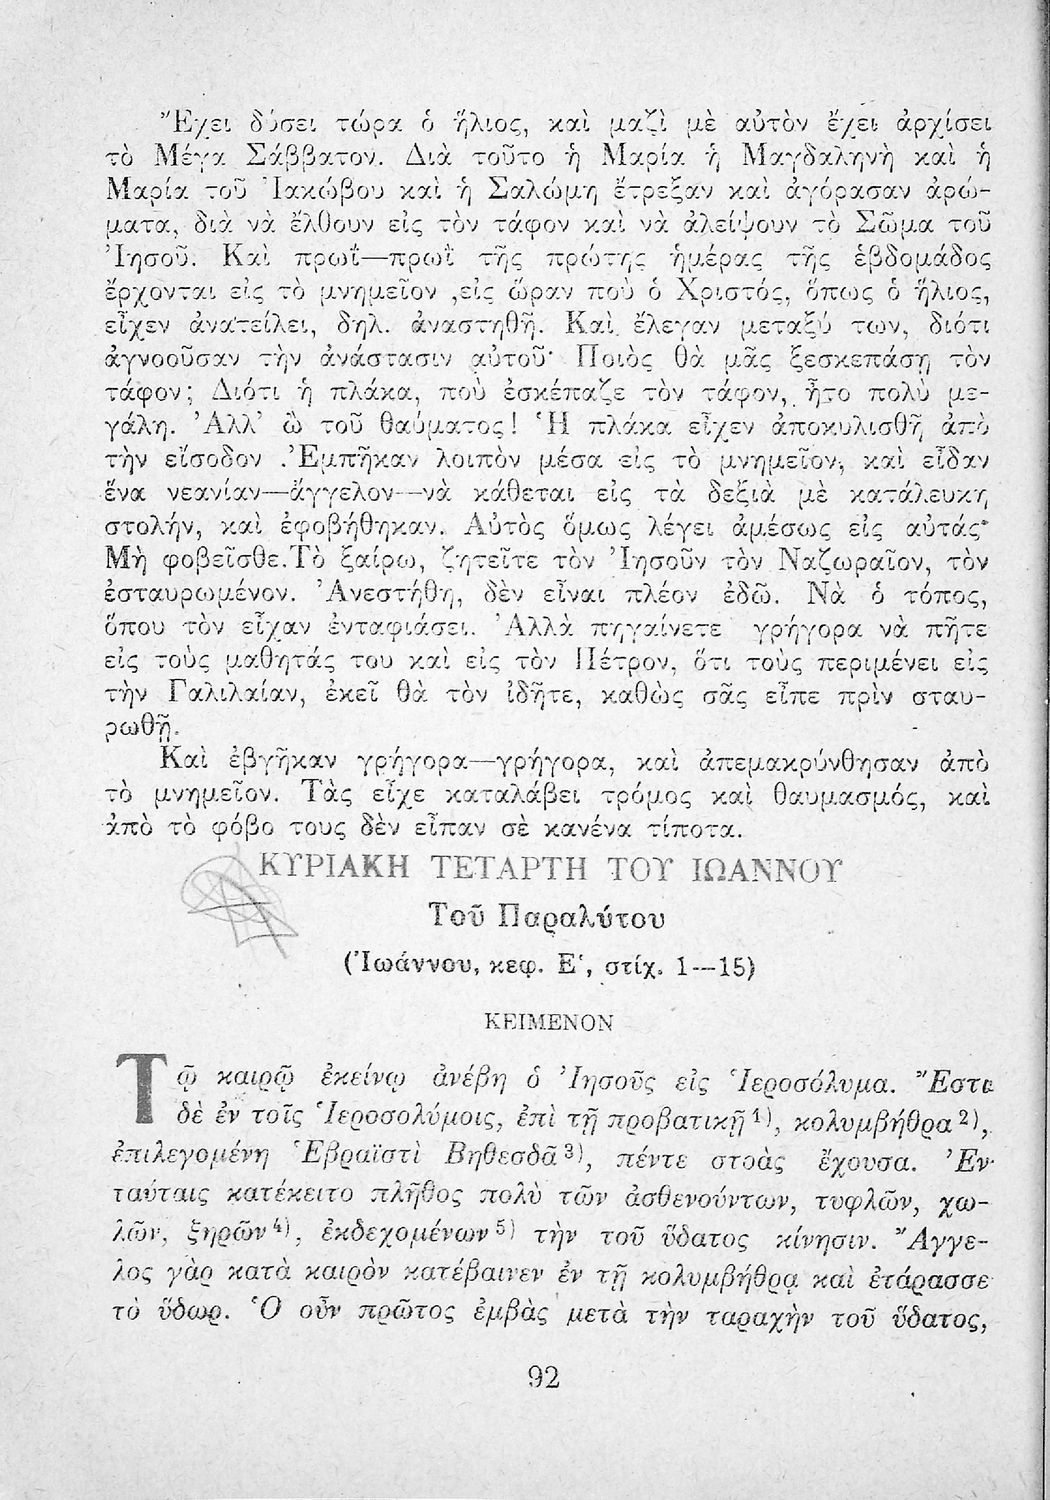 Ἔχει δύσει τώρα ὁ ἥλιος, καὶ μαζὶ μὲ αὐτὸν ἔχει ἀρχίσει
τὸ Μέγα Σάββατον. Διὰ τοῦτο ἡ Μαρία ἡ Μαγδαληνὴ καὶ ἡ
Μαρία τοῦ Ἰακώβου καὶ ἡ Σαλώμη ἔτρεξαν καὶ ἀγόρασαν ἀρώ-
ματα, διὰ νὰ ἔλθουν εἰς τὸν τάφον καὶ νὰ ἀλείψουν τὸ Σῶμα τοῦ
Ἰησοῦ. Καὶ πρωῒ—πρωῒ τῆς πρώτης ἡμέρας τῆς ἑβδομάδος
ἔρχονται εἰς τὸ μνημεῖον ,εἰς ὥραν ποὺ ὁ Χριστός, ὅπως ὁ ἥλιος,
εἶχεν ἀνατείλει, δηλ. ἀναστηθῆ. Καὶ ἔλεγαν μεταξύ των, διότι
ἀγνοοῦσαν τὴν ἀνάστασιν αὐτοῦ· Ποιὸς θὰ μᾶς ξεσκεπάσῃ τὸν
τάφον; Διότι ἡ πλάκα, ποὺ ἐσκέπαζε τὸν τάφον, ἦτο πολὺ με-
γάλη. Ἀλλ' ὢ τοῦ θαύματος! Ἡ πλάκα εἶχεν ἀποκυλισθῆ ἀπὸ
τὴν εἴσοδον .Ἐμπῆκαν λοιπὸν μέσα εἰς τὸ μνημεῖον, καὶ εἶδαν
ἕνα νεανίαν—ἄγγελον—νὰ κάθεται εἰς τὰ δεξιὰ μὲ κατάλευκη
στολήν, καὶ ἐφοβήθηκαν. Αὐτὸς ὅμως λέγει ἀμέσως εἰς αὐτάς·
Μὴ φοβεῖσθε.Τὸ ξαίρω, ζητεῖτε τὸν Ἰησοῦν τὸν Ναζωραῖον, τὸν
ἐσταυρωμένον. Ἀνεστήθη, δὲν εἶναι πλέον ἐδῶ. Νὰ ὁ τόπος,
ὅπου τὸν εἶχαν ἐνταφιάσει. Ἀλλὰ πηγαίνετε γρήγορα νὰ πῆτε
εἰς τοὺς μαθητάς του καὶ εἰς τὸν Πέτρον, ὅτι τοὺς περιμένει εἰς
τὴν Γαλιλαίαν, ἐκεῖ θὰ τὸν ἰδῆτε, καθὼς σᾶς εἶπε πρὶν σταυ-
ρωθῇ.
Καὶ ἐβγῆκαν γρήγορα—γρήγορα, καὶ ἀπεμακρύνθησαν ἀπὸ
τὸ μνημεῖον. Τὰς εἶχε καταλάβει τρόμος καὶ θαυμασμός, καὶ
ἀπὸ τὸ φόβο τους δὲν εἶπαν σὲ κανένα τίποτα.
ΚΥΡΙΑΚΗ ΤΕΤΑΡΤΗ ΤΟΥ ΙΩΑΝΝΟΥ
Τοῦ Παραλύτου
(Ἰωάννου, κεφ. Ε‘, στίχ. 1—15)
ΚΕΙΜΕΝΟΝ
Τῷ καιρῷ ἐκείνῳ ἀνέβη ὁ Ἰησοῦς εἰς Ἱεροσόλυμα. Ἔστι
δὲ ἐν τοῖς Ἱεροσολύμοις, ἐπὶ τῇ προβατικῇ 1), κολυμβήθρα 2),
ἐπιλεγομένη Ἑβραϊστὶ Βηθεσδᾶ 3), πέντε στοὰς ἔχουσα. Ἐν
ταύταις κατέκειτο πλῆθος πολὺ τῶν ἀσθενούντων, τυφλῶν, χω-
λῶν, ξηρῶν 4), ἐκδεχομένων 5) τὴν τοῦ ὕδατος κίνησιν. Ἄγγε-
λος γὰρ κατὰ καιρὸν κατέβαινεν ἐν τῇ κολυμβήθρᾳ καὶ ἐτάρασσε
τὸ ὕδωρ. Ὁ οὖν πρῶτος ἐμβὰς μετὰ τὴν ταραχὴν τοῦ ὕδατος,
92